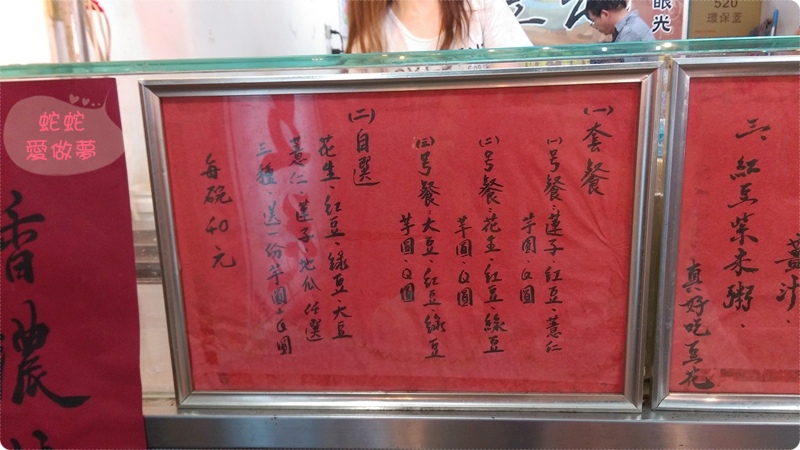 蛇蛇
愛做夢
香濃
(一)套餐
(一)号餐、蓮子、紅豆、薏仁
芋圓、Q圓
(二)号餐、花生、紅豆、綠豆
芋圓、Q圓
(三)号餐、大豆、紅豆、綠豆
芋圓、Q圓
(二)自選
花生、紅豆、綠豆、大豆
薏仁、蓮子、地瓜、任選
三種、送一份芋圓、Q圓
每碗40元
薑汁、
三、紅豆紫米粥、
真好吃豆花
眼光
520
環保蓋